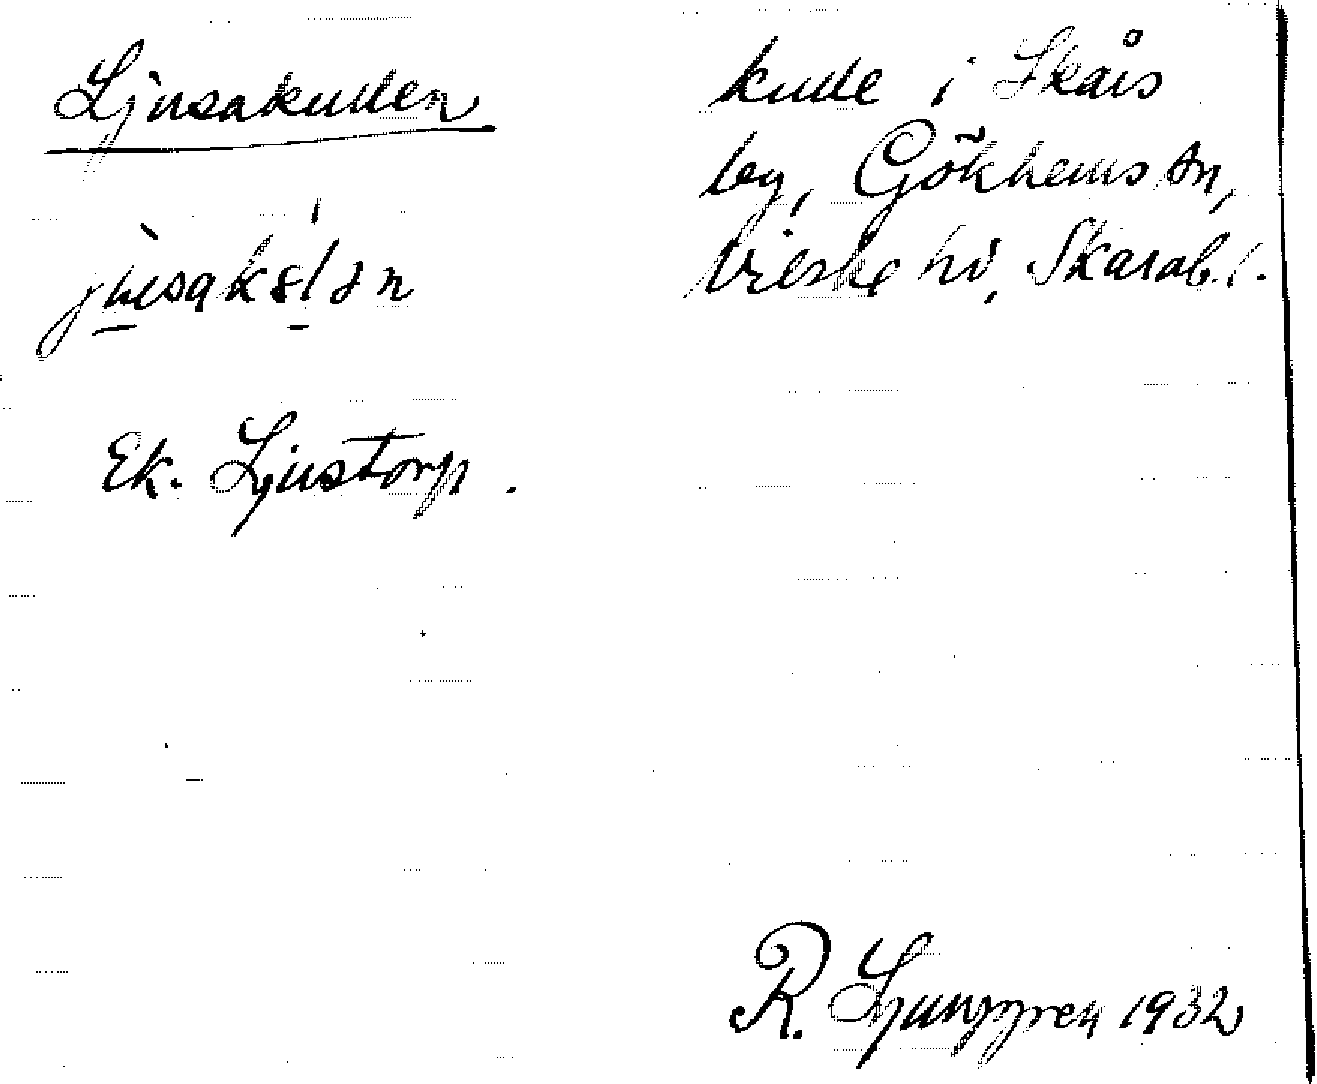 Ljusakullen
Ek. Ljustorp.
kulle i Skårs
by, Gökhems sn,
Vilske hd, Skarab. l.
R. Ljunggren 1932